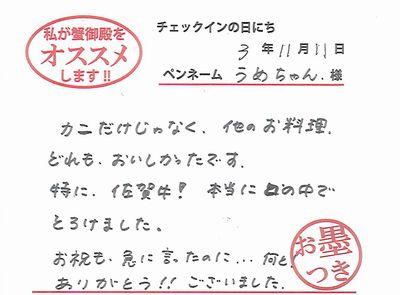 私が蟹御殿を
オススメ
します!!
チェックインの日にち
3年11月11日
ペンネーム うめちゃん.様
カニだけじゃなく、他のお料理、
どれも、おいしかったです。
特に、佐賀牛! 本当に口の中で
とろけました。
お祝も、急に言ったのに…何と、
ありがとう!! ございました。
お墨
つき